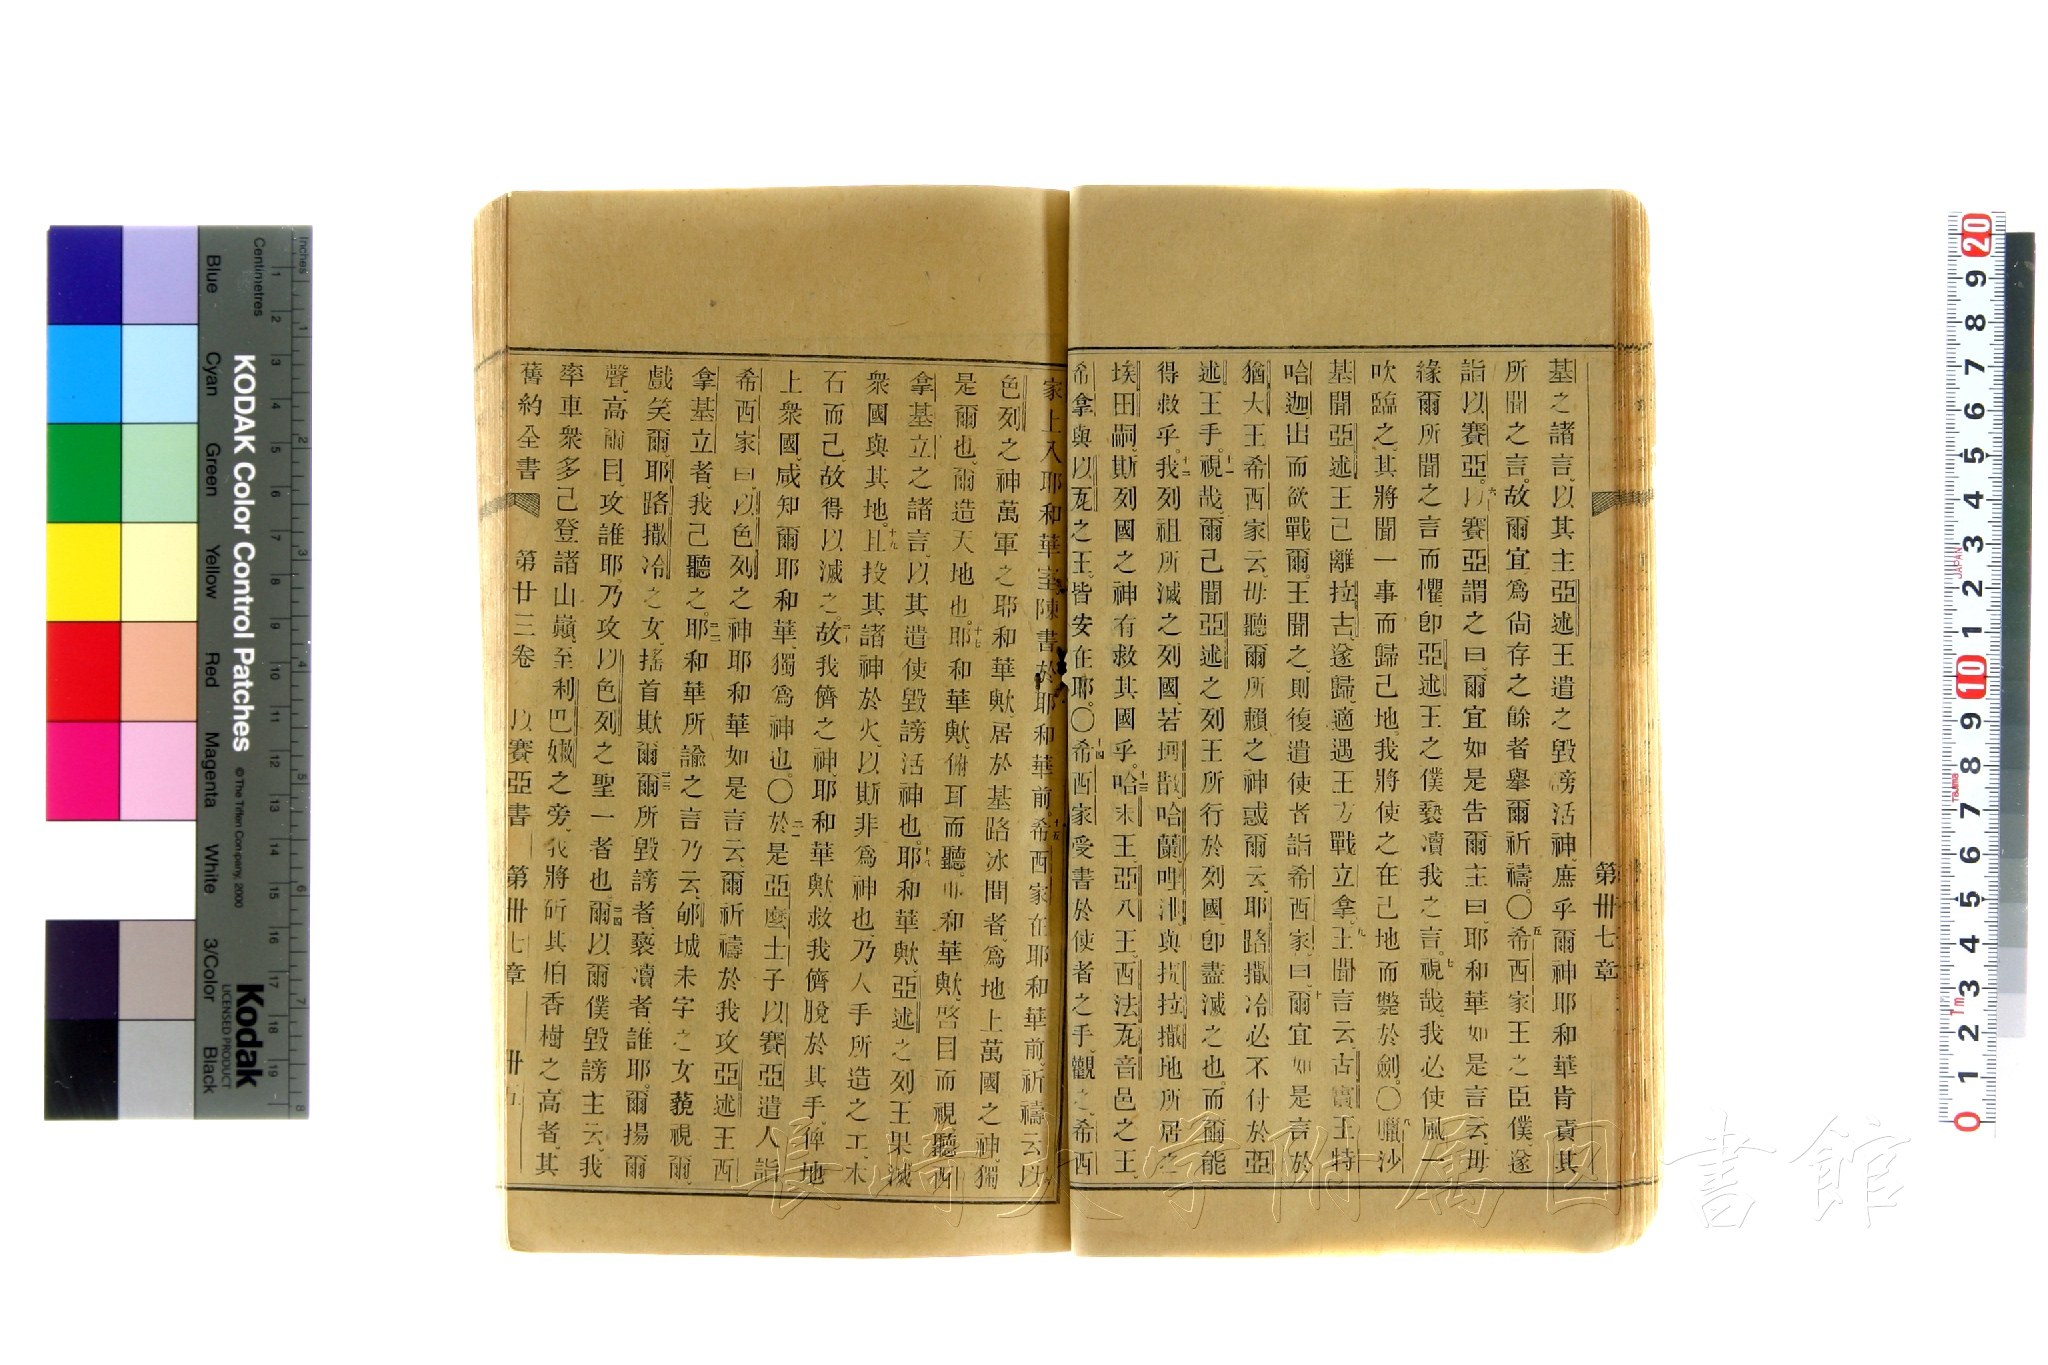 第卅七章
基之諸言、以其主亞述王遣之毀謗活神、庶乎爾神耶和華肯責其
所聞之言、故爾宜爲尙存之餘者舉爾祈禱。〇五希西家王之臣僕遂
詣以賽亞。六以賽亞謂之曰、爾宜如是告爾主曰、耶和華如是言云、毋
緣爾所聞之言而懼、卽亞述王之僕褻瀆我之言。七視哉、我必使風一
吹臨之、其將聞一事而歸己地、我將使之在己地而斃於劍。〇八囄沙
基聞亞述王己離拉古、遂歸、適遇王方戰立拿。九王聞言云、古實王特
哈迦出而欲戰爾。王聞之、則復遣使者詣希西家、曰、十爾宜如是言於
猶大王希西家云、毋聽爾所賴之神惑爾云、耶路撒冷必不付於亞
述王手。十一視哉、爾己聞亞述之列王所行於列國、卽盡滅之也、而爾能
得救乎。十二我列祖所滅之列國、若坷散、哈蘭、與拉撒地所居之
埃田嗣、斯列國之神有救其國乎。十三哈末王、亞八王、西法瓦音邑之王、
希拿與以瓦之王、皆安在耶。〇十四希西家受書於使者之手、觀之、希西
家上入耶和華室、陳書於耶和華前。十五希西家在耶和華前、祈禱云、以
色列之神萬軍之耶和華歟、居於基路冰間者、爲地上萬國之神、獨
是爾也、爾造天地也。十七耶和華歟、俯耳而聽、耶和華歟、啓目而視、聽西
拿基立之諸言、以其遣使毀謗活神也。十八耶和華歟、亞述之列王果滅
衆國與其地。十九且投其諸神於火、以斯非爲神也、乃人手所造之工、木
石而己、故得以滅之。故我儕之神、耶和華歟、救我儕脫於其手、俾地
上衆國、咸知爾耶和華、獨爲神也。〇於是亞麽士子以賽亞遣人詣
希西家曰、以色列之神耶和華如是言云、爾祈禱於我攻亞述王西
拿基立者、我己聽之。耶和華所諭之言乃云、郇城未字之女藐視爾、
戲笑爾、耶路撒冷之女、搖首欺爾。爾所毀謗者、褻瀆者、誰耶。爾揚爾
聲、高爾目、攻誰耶。乃攻以色列之聖一者也。爾以爾僕毀謗主云、我
率車衆多己登諸山巔、至利巴嫩之旁、我將斫其柏香樹之高者、其
舊約全書　第廿三卷　以賽亞書　第卅七章　卅五
長崎大学附属図書館
KODAK Color Control Patches
© The Tiffen Company, 2000
Kodak
LICENSED PRODUCT
Inches
Centimetres
Blue
Cyan
Green
Yellow
Red
Magenta
White
3/Color
Black